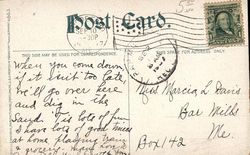 Post Card.
THIS SIDE MAY BE USED FOR CORRESPONDENCE
THIS SIDE FOR ADDRESS ONLY.
When you come down
if it isn't too late,
we'll go over here
and dig in the
sand. 'Tis lots of fun.
I have lots of good times
at home playing train
Miss Marcia L. Davis
Bar Mills
Me.
Box 142